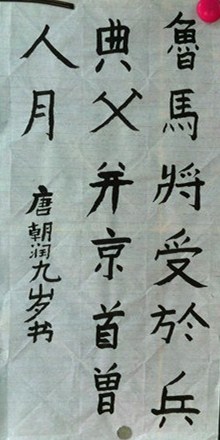 魯馬將受於兵
典父并京首曾
人月
唐朝润九岁书